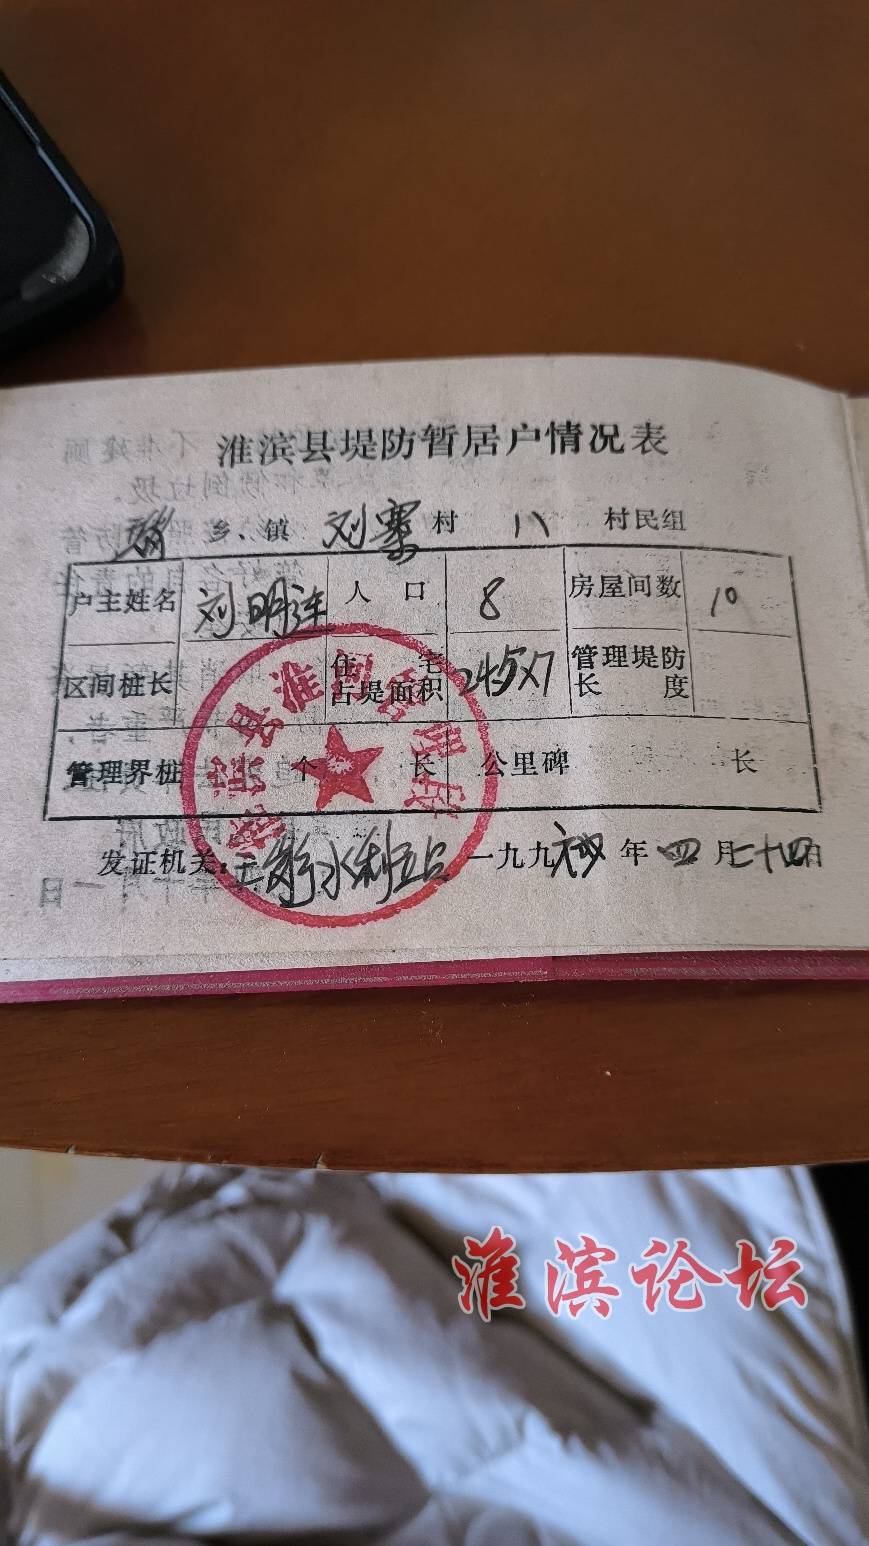 淮滨县堤防暂居户情况表
乡、镇 刘寨村 八 村民组
户主姓名 刘明连 人口 8 房屋间数 10
区间桩长 住宅占堤面积 24.5X7 管理堤防长度
管理界桩 个 长 公里碑 长
发证机关: 水利站 一九九 年 四 月二十四日
淮滨县淮河
淮滨论坛